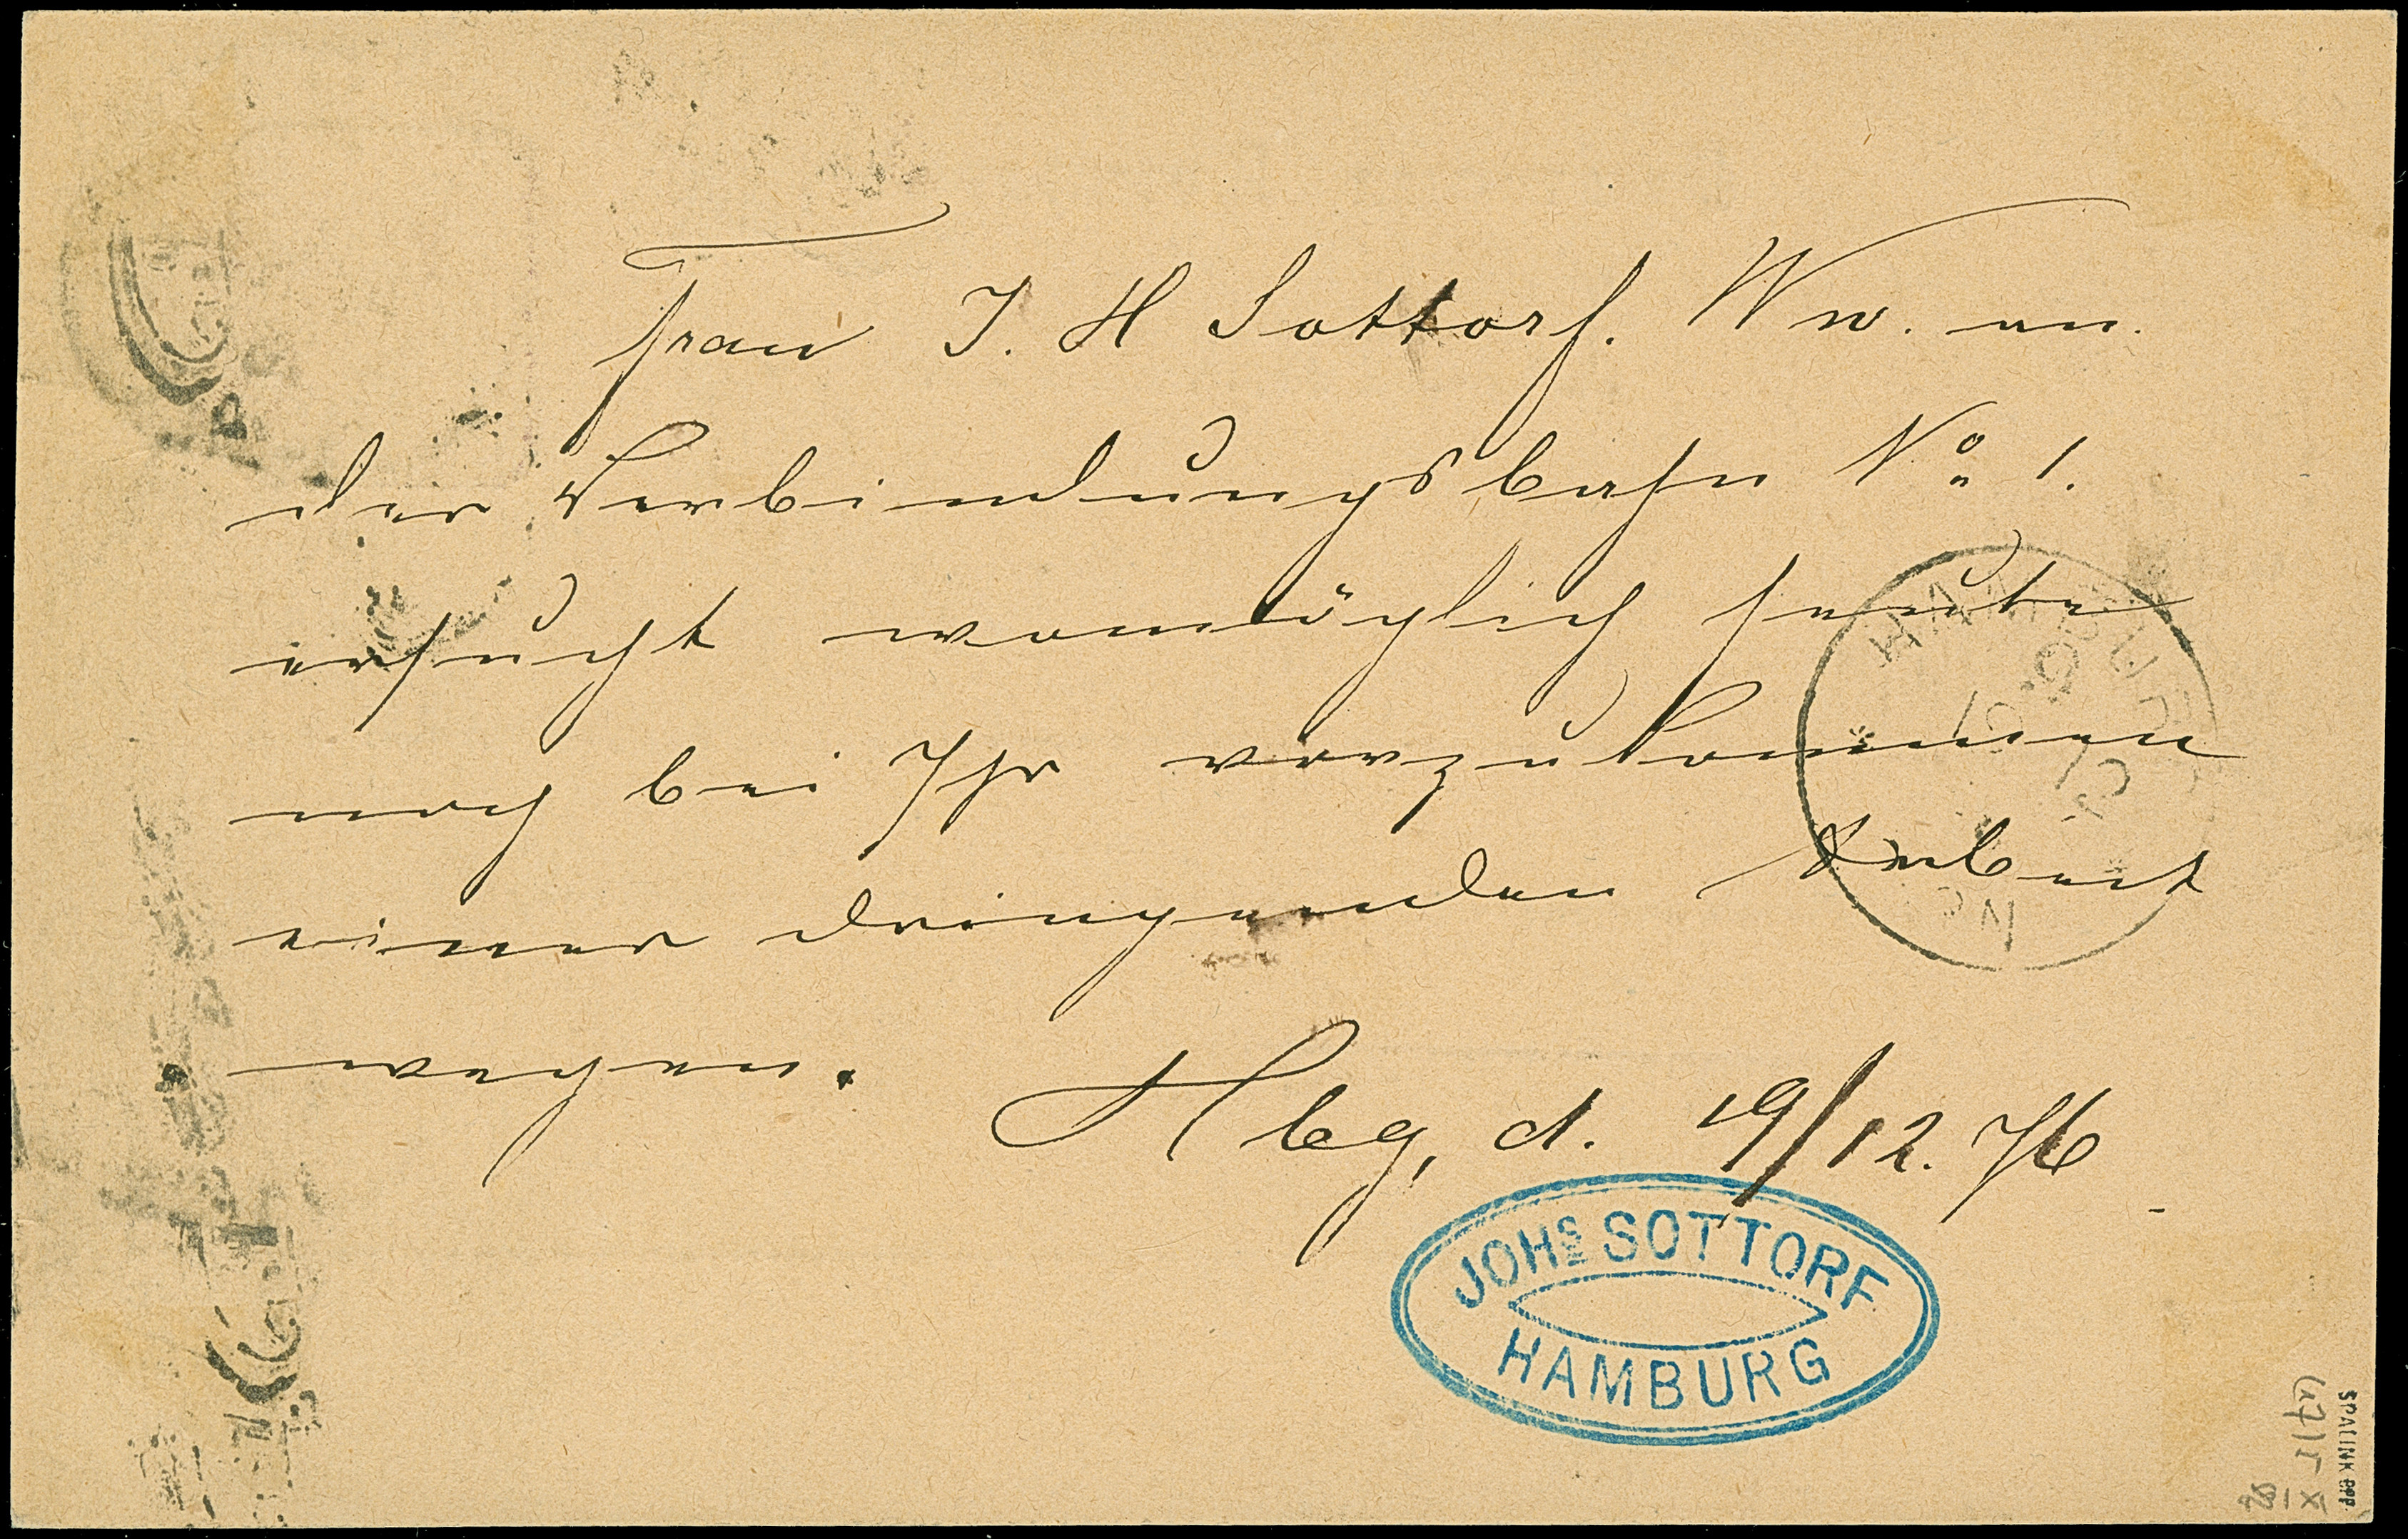 Frau J. H Sottorf. Ww. an.
der Verbindungsbahn No 1.
ersucht womöglich heute
noch bei Ihr vorzukommen
einer dringenden Arbeit
wegen.
Hbg, d. 19/12. 76
JOHS SOTTORF
HAMBURG
HAMBURG
SPALINK BPP